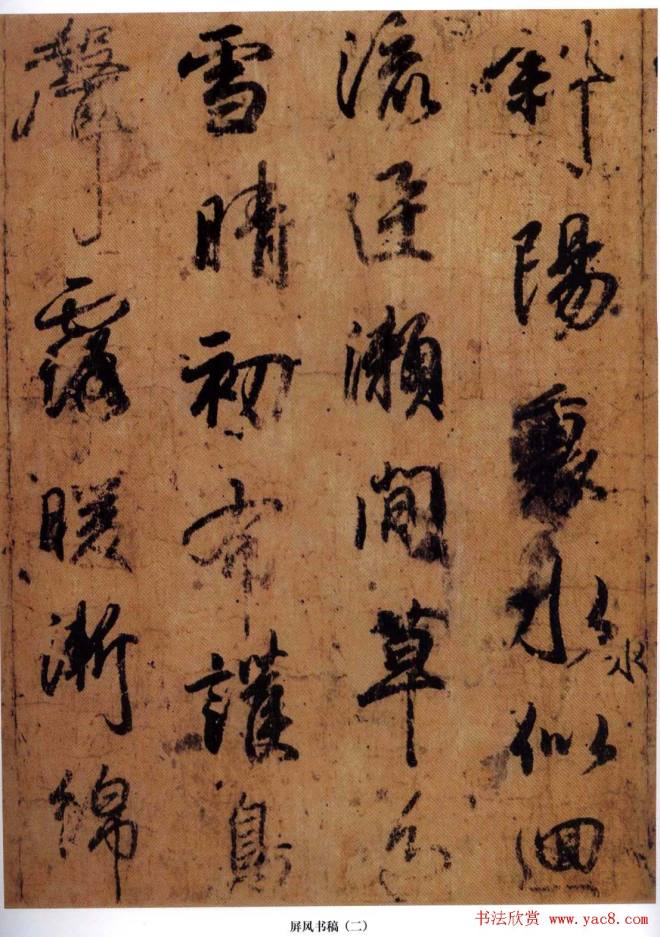 斜陽裏水似迴
流迅瀨間草色
雪晴初布護鳥
聲露暖漸綿
屏风书稿（二）
书法欣赏 www.yac8.com